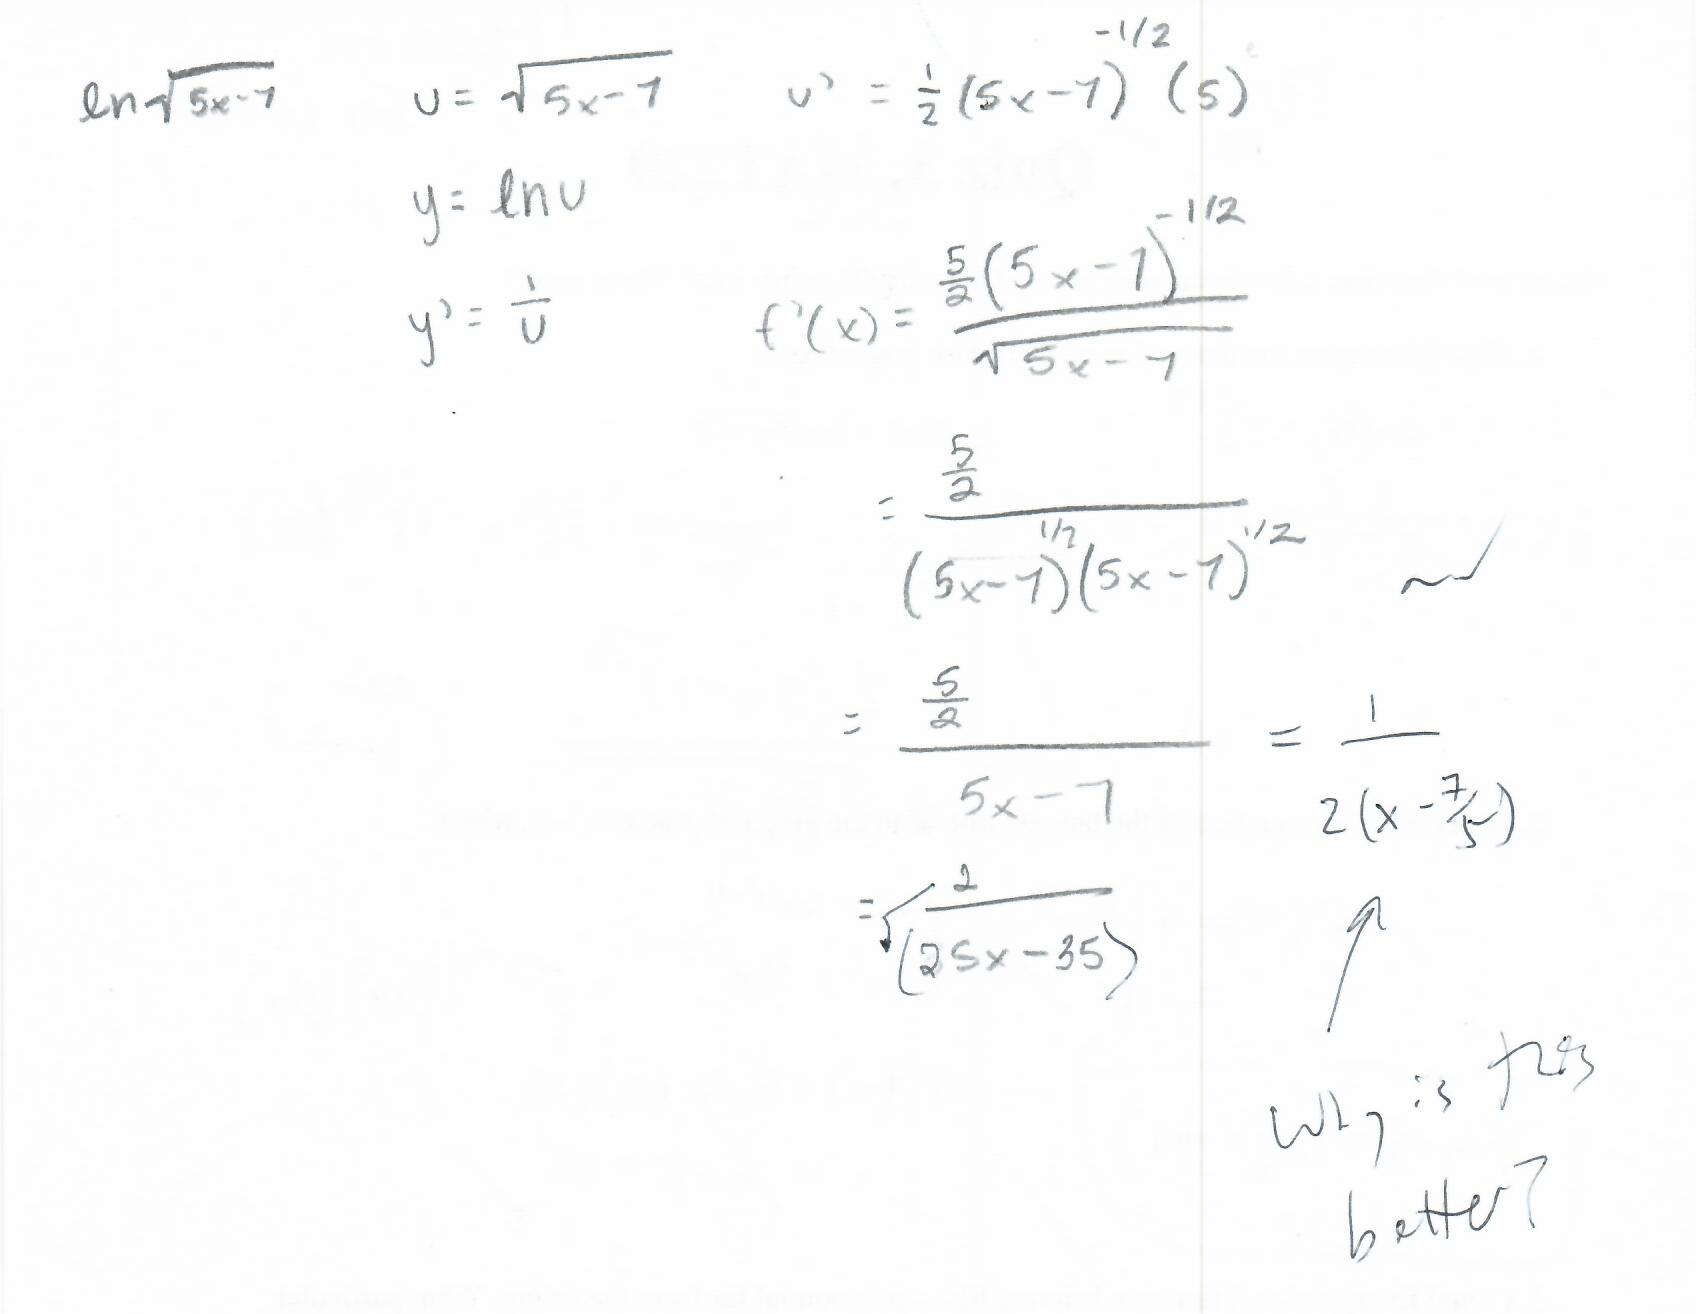 ln√(5x-7) u = √(5x-7) u' = 1/2 (5x-7)^(-1/2) (5)
y = ln u
y' = 1/u f'(x) = (5/2 (5x-7)^(-1/2)) / √(5x-7)
= (5/2) / ((5x-7)^(1/2) (5x-7)^(1/2))
= (5/2) / (5x-7) = 1 / (2(x - 7/5))
= 2 / (25x-35)
Why is this
better?